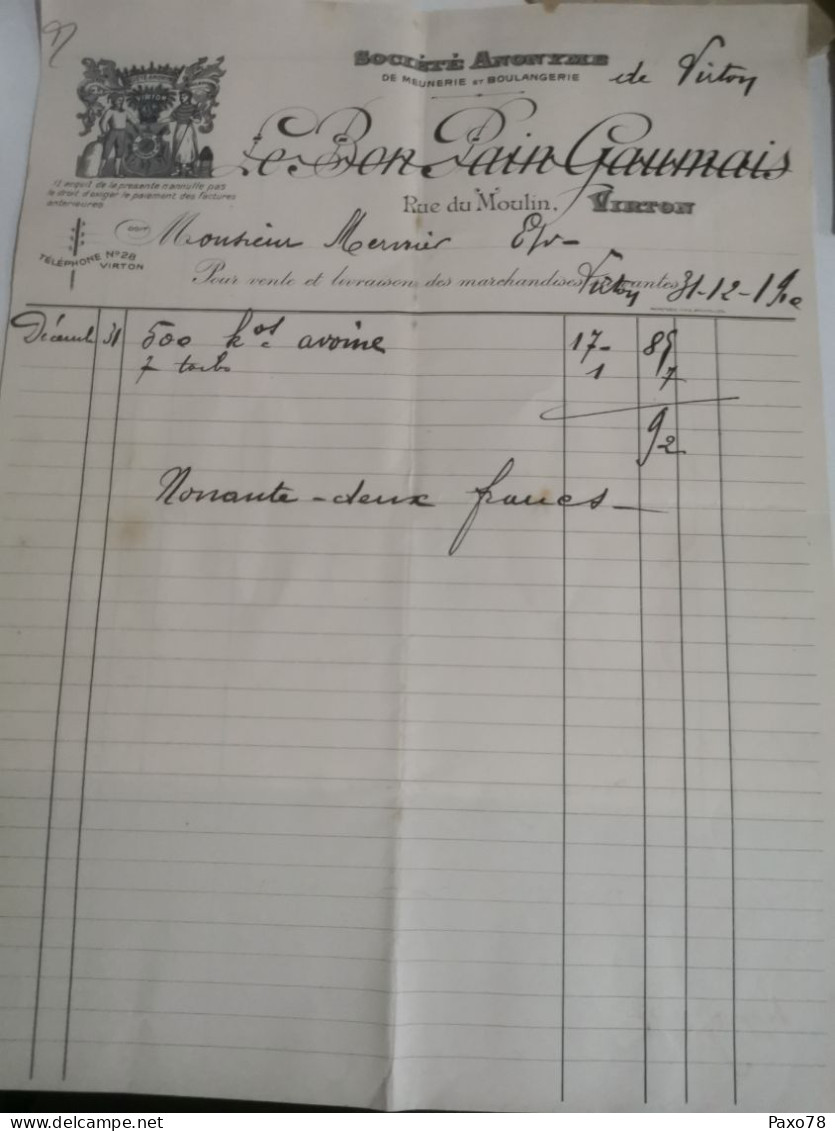 Société Anonyme
de Meunerie et Boulangerie de Virton
VIRTON
Le Bon Pain Gaumais
L'acquit de la présente n'annulle pas
le droit d'exiger le paiement des factures
antérieures
Rue du Moulin, Virton
DOIT Monsieur
TÉLÉPHONE N° 28
VIRTON
Pour vente et livraison des marchandises suivantes Virton 31-12-19
31 500 kos avoine 17- 85
7 1 7
92
Nonante-deux francs
Paxo78